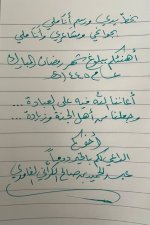 بخط يدي ورسم أناملي
بجوامحي ومشاعري وأناملي
أهنئكم ببلوغ شهر رمضان المبارك
عام ١٤٤٥هـ
أعاننا الله فيه على العبادة ...
وجعلنا من أهل الجنة وزيادة ...
أخوكم
الداعي لكم بالخير دوماً
عبدالحميد بن صالح